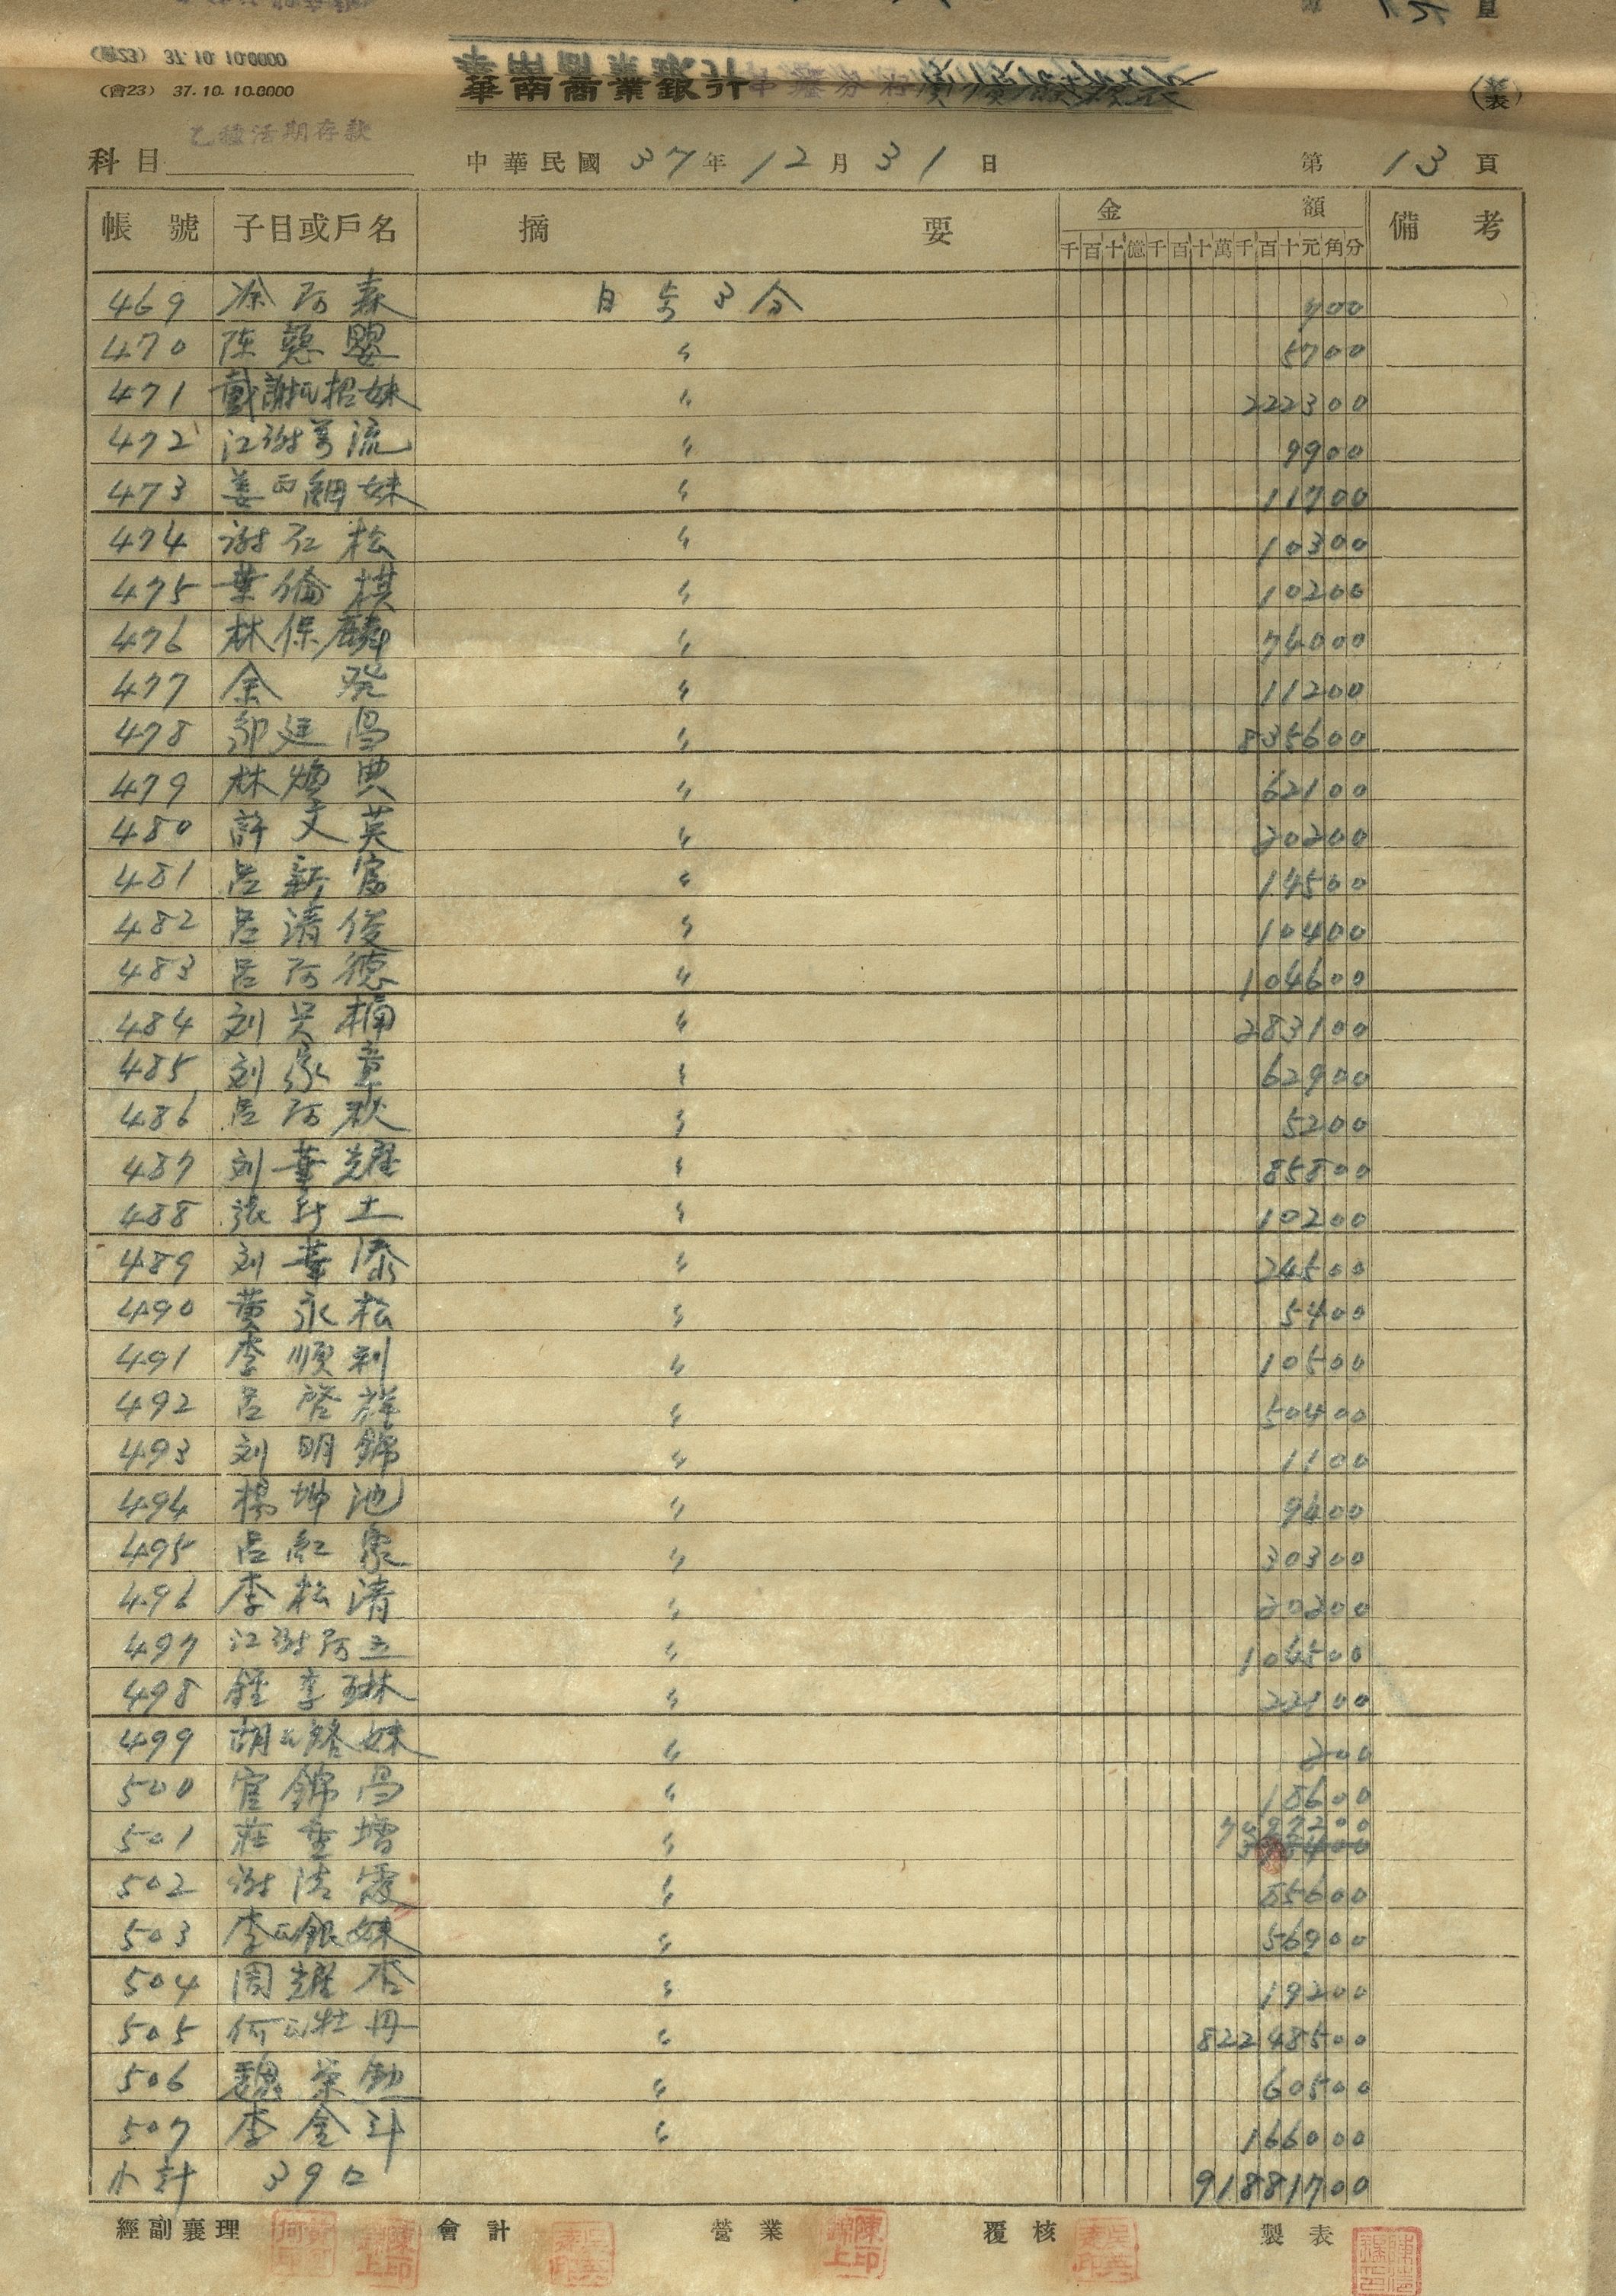 (會23) 37.10.10.0000
華南商業銀行
(表)
乙種活期存款
科目 中華民國 37年 12月 31日 第 13 頁
帳號 子目或戶名 摘要 金額 備考
千百十億千百十萬千百十元角分
469 涂阿森 日步3分 700
470 陳 5700
471 戴謝氏招妹 〃 222300
472 江謝芳流 〃 9900
473 姜氏細妹 〃 11700
474 謝石松 〃 10300
475 葉倫棋 〃 10200
476 林保麟 〃 74000
477 余發 〃 11200
478 廷昌 〃 835600
479 林煥典 〃 62100
480 許文英 〃 20200
481 呂新富 〃 14500
482 呂清俊 〃 10400
483 呂阿德 〃 104600
484 刘吳 〃 283100
485 刘家章 〃 62900
486 呂阿秋 〃 5200
487 刘華耀 〃 85800
488 張新土 〃 10200
489 刘華添 〃 24500
490 黃永松 〃 5400
491 李順利 〃 10500
492 呂啓祥 〃 50400
493 刘明錦 〃 1100
494 楊坤池 〃 9400
495 呂紅家 〃 30300
496 李松清 〃 20200
497 江謝阿立 〃 104500
498 鍾李琳 〃 22100
499 胡氏妹 〃 200
500 官錦昌 〃 18600
501 莊垂增 〃
502 謝清霞 〃 85600
503 李氏銀妹 〃 56900
504 周耀杏 〃 19200
505 何氏牡丹 〃 82248500
506 魏榮 〃 60500
507 李金斗 〃 166000
小計 39口 91881700
經副襄理 會計 營業 覆核 製表